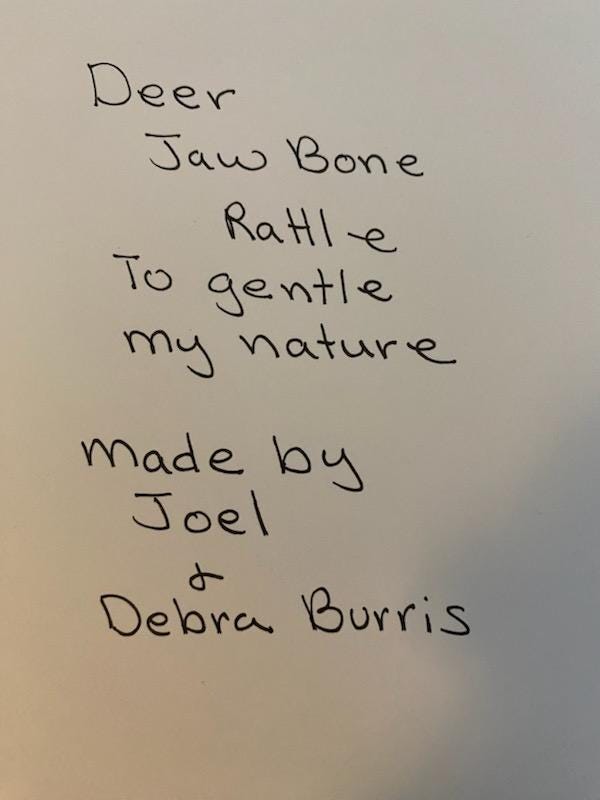 Deer
Jaw Bone
Rattle
To gentle
my nature
made by
Joel
&
Debra Burris